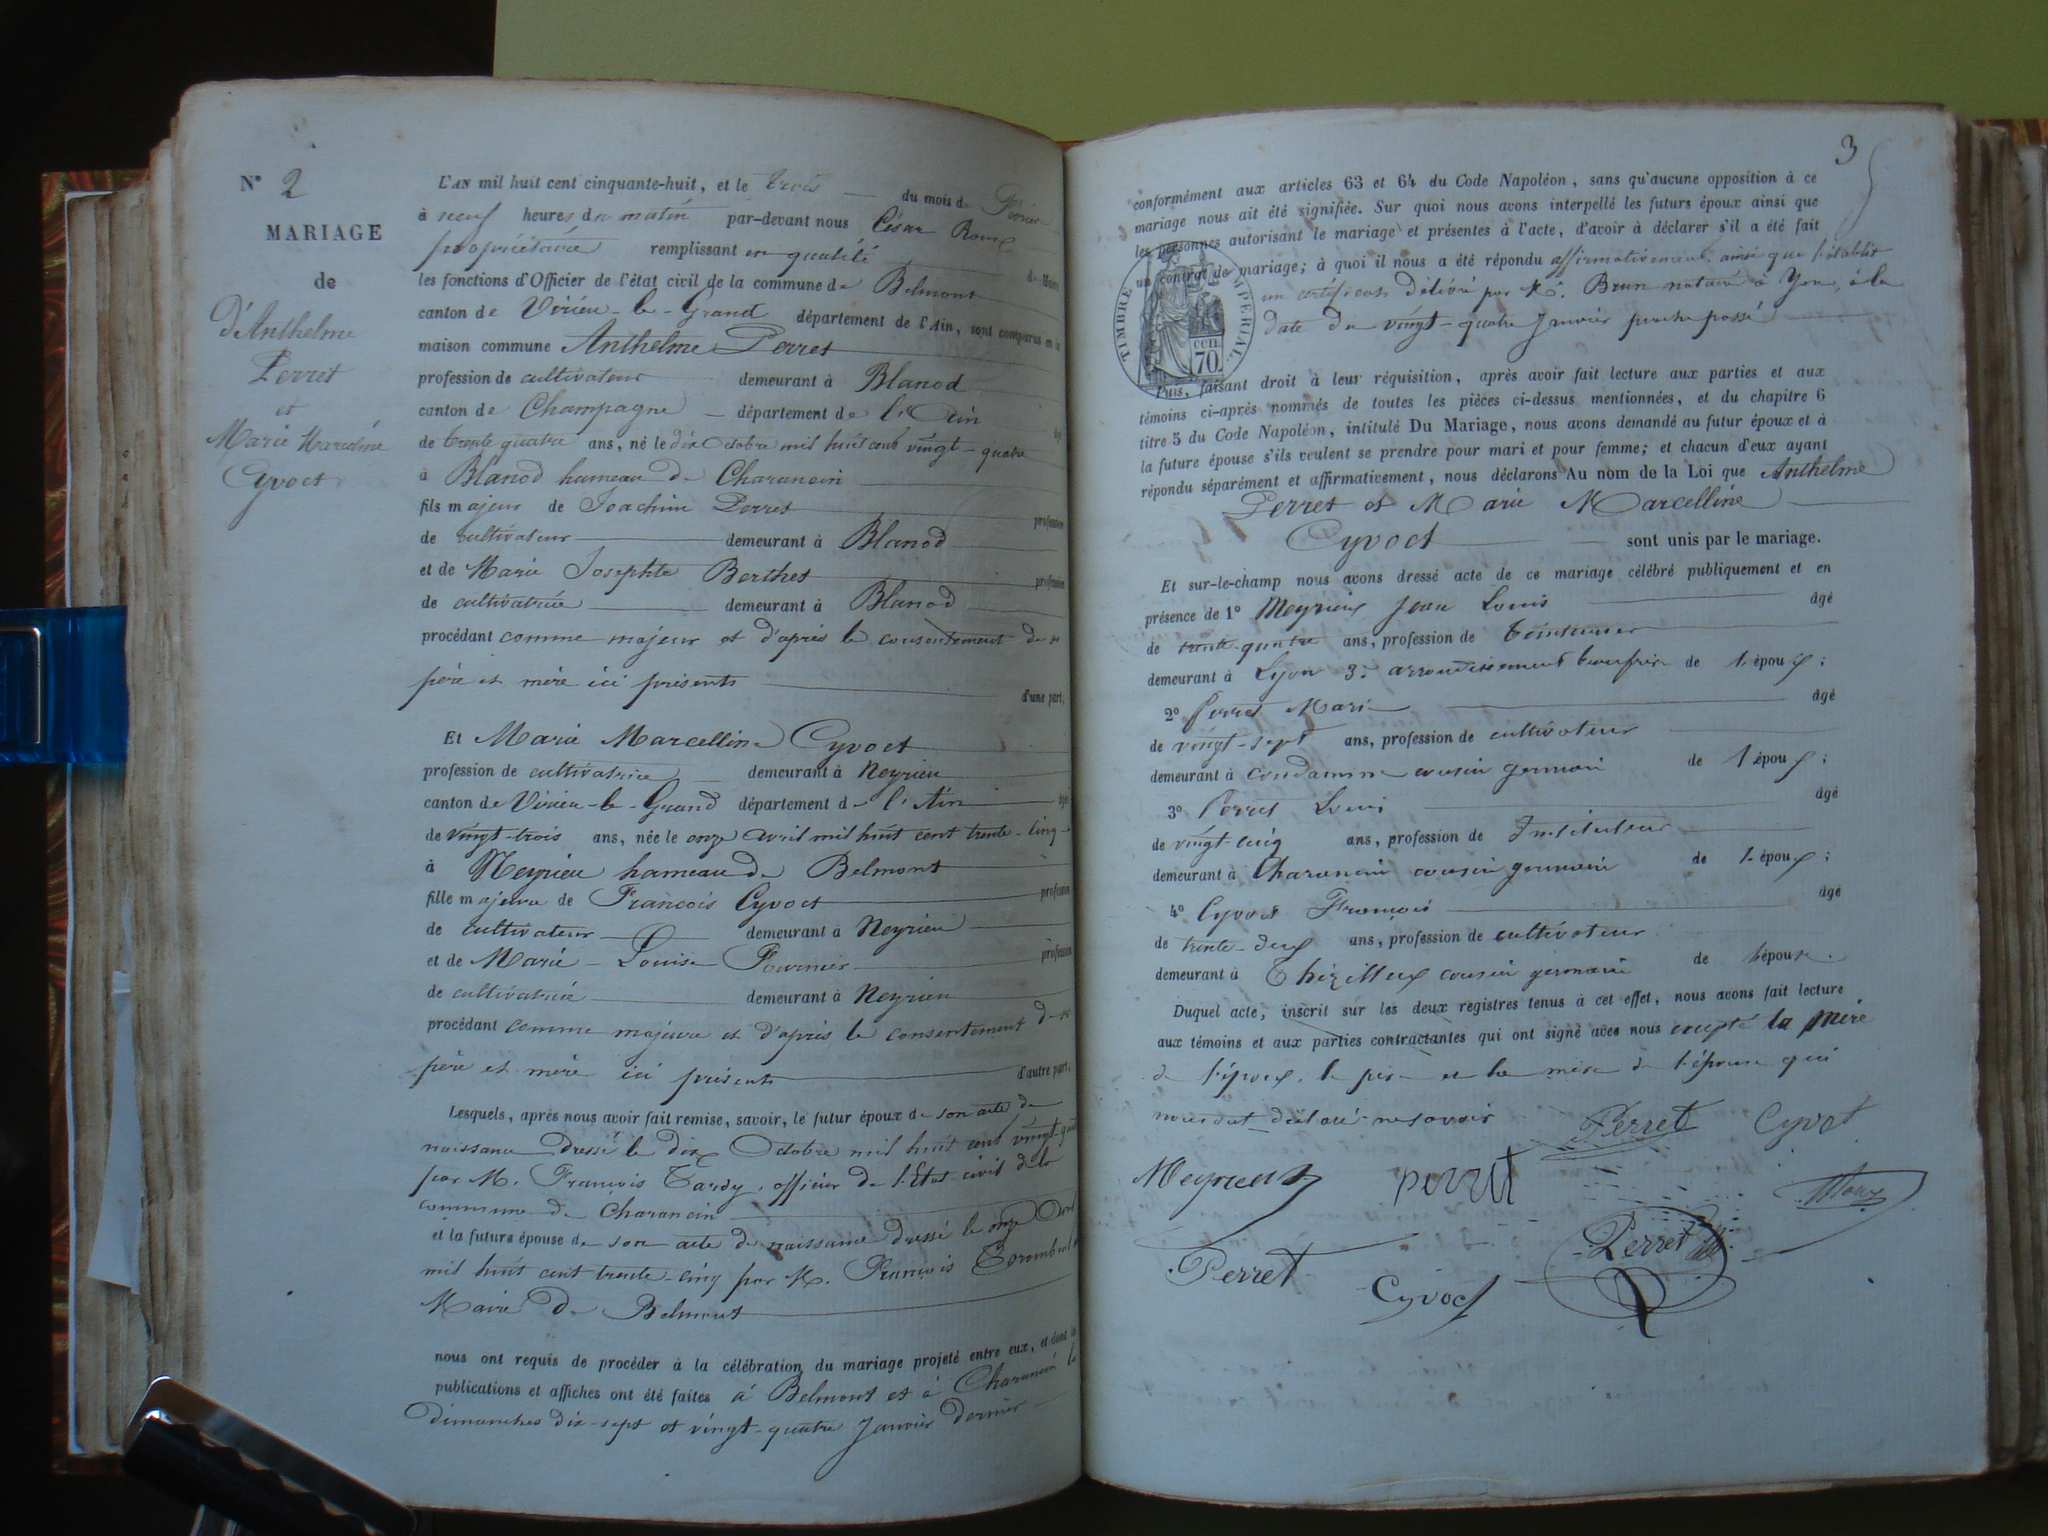 N° 2
MARIAGE
de
d'Anthelme
Perret
et
Marie Marceline
Cyvoct
L'AN mil huit cent cinquante-huit, et le trois du mois de Février
à neuf heures du matin par-devant nous César Roux
propriétaire remplissant en qualité de Maire
les fonctions d'Officier de l'état civil de la commune de Belmont
canton de Virieu-le-Grand département de l'Ain, sont comparus en la
maison commune Anthelme Perret
profession de cultivateur demeurant à Blanod
canton de Champagne département de l'Ain âgé
de trente quatre ans, né le dix Octobre mil huit cent vingt-quatre
à Blanod hameau de Charancin
fils majeur de Joachim Perret profession
de cultivateur demeurant à Blanod
et de Marie Josephte Berthet profession
de cultivatrice demeurant à Blanod
procédant comme majeur et d'après le consentement de ses
père et mère ici présents d'une part,
Et Marie Marcelline Cyvoct
profession de cultivatrice demeurant à Neyrieu
canton de Virieu-le-Grand département de l'Ain âgée
de vingt-trois ans, née le onze avril mil huit cent trente-cinq
à Neyrieu hameau de Belmont
fille majeure de François Cyvoct profession
de cultivateur demeurant à Neyrieu
et de Marie-Louise Fournier profession
de cultivatrice demeurant à Neyrieu
procédant comme majeure et d'après le consentement de ses
père et mère ici présents d'autre part,
Lesquels, après nous avoir fait remise, savoir, le futur époux de son acte de
naissance dressé le dix Octobre mil huit cent vingt-quatre
par M. François Tardy, officier de l'Etat civil de la
commune de Charancin
et la future épouse de son acte de naissance dressé le onze Avril
mil huit cent trente-cinq par M. François
Maire de Belmont
nous ont requis de procéder à la célébration du mariage projeté entre eux, et dont les
publications et affiches ont été faites à Belmont et à Charancin les
dimanches dix-sept et vingt-quatre Janvier dernier
3
conformément aux articles 63 et 64 du Code Napoléon, sans qu'aucune opposition à ce
mariage nous ait été signifiée. Sur quoi nous avons interpellé les futurs époux ainsi que
les personnes autorisant le mariage et présentes à l'acte, d'avoir à déclarer s'il a été fait
un contrat de mariage; à quoi il nous a été répondu affirmativement ainsi que l'établit
un certificat délivré par Me. Brun notaire à Yon, à la
date du vingt-quatre Janvier proche passé
TIMBRE IMPERIAL
CEN. 70.
Puis, faisant droit à leur réquisition, après avoir fait lecture aux parties et aux
témoins ci-après nommés de toutes les pièces ci-dessus mentionnées, et du chapitre 6
titre 5 du Code Napoléon, intitulé Du Mariage, nous avons demandé au futur époux et à
la future épouse s'ils veulent se prendre pour mari et pour femme; et chacun d'eux ayant
répondu séparément et affirmativement, nous déclarons Au nom de la Loi que Anthelme
Perret et Marie Marcelline
Cyvoct sont unis par le mariage.
Et sur-le-champ nous avons dressé acte de ce mariage célébré publiquement et en
présence de 1° Meyrieux Jean Louis âgé
de trente-quatre ans, profession de teinturier
demeurant à Lyon 3e arrondissement beaufrère de l'époux;
2° Perret Marie âgé
de vingt-sept ans, profession de cultivateur
demeurant à Condamine cousin germain de l'époux;
3° Perret Louis âgé
de vingt-cinq ans, profession de Instituteur
demeurant à Charancin cousin germain de l'époux;
4° Cyvoct François âgé
de trente-deux ans, profession de cultivateur
demeurant à Thézillieu cousin germain de l'épouse.
Duquel acte, inscrit sur les deux registres tenus à cet effet, nous avons fait lecture
aux témoins et aux parties contractantes qui ont signé avec nous excepté la mère
de l'époux, le père et la mère de l'épouse qui
nous ont déclaré ne savoir
Perret Cyvot
Meyrieux perret Roux
Perret Cyvoct Perret